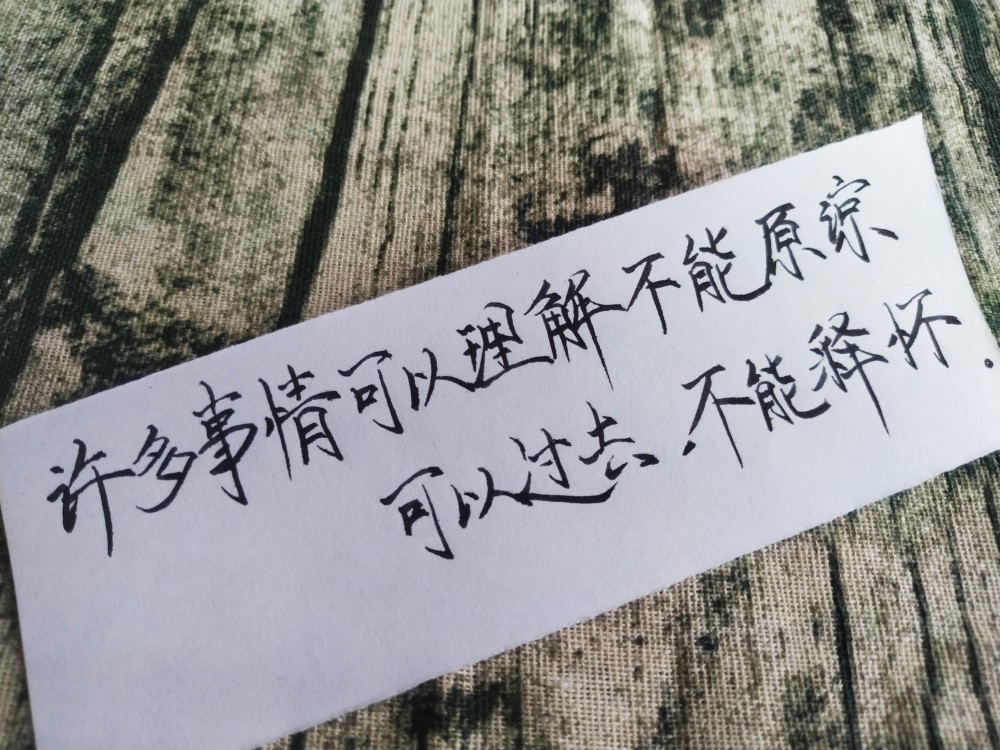 许多事情可以理解不能原谅
可以过去.不能释怀.